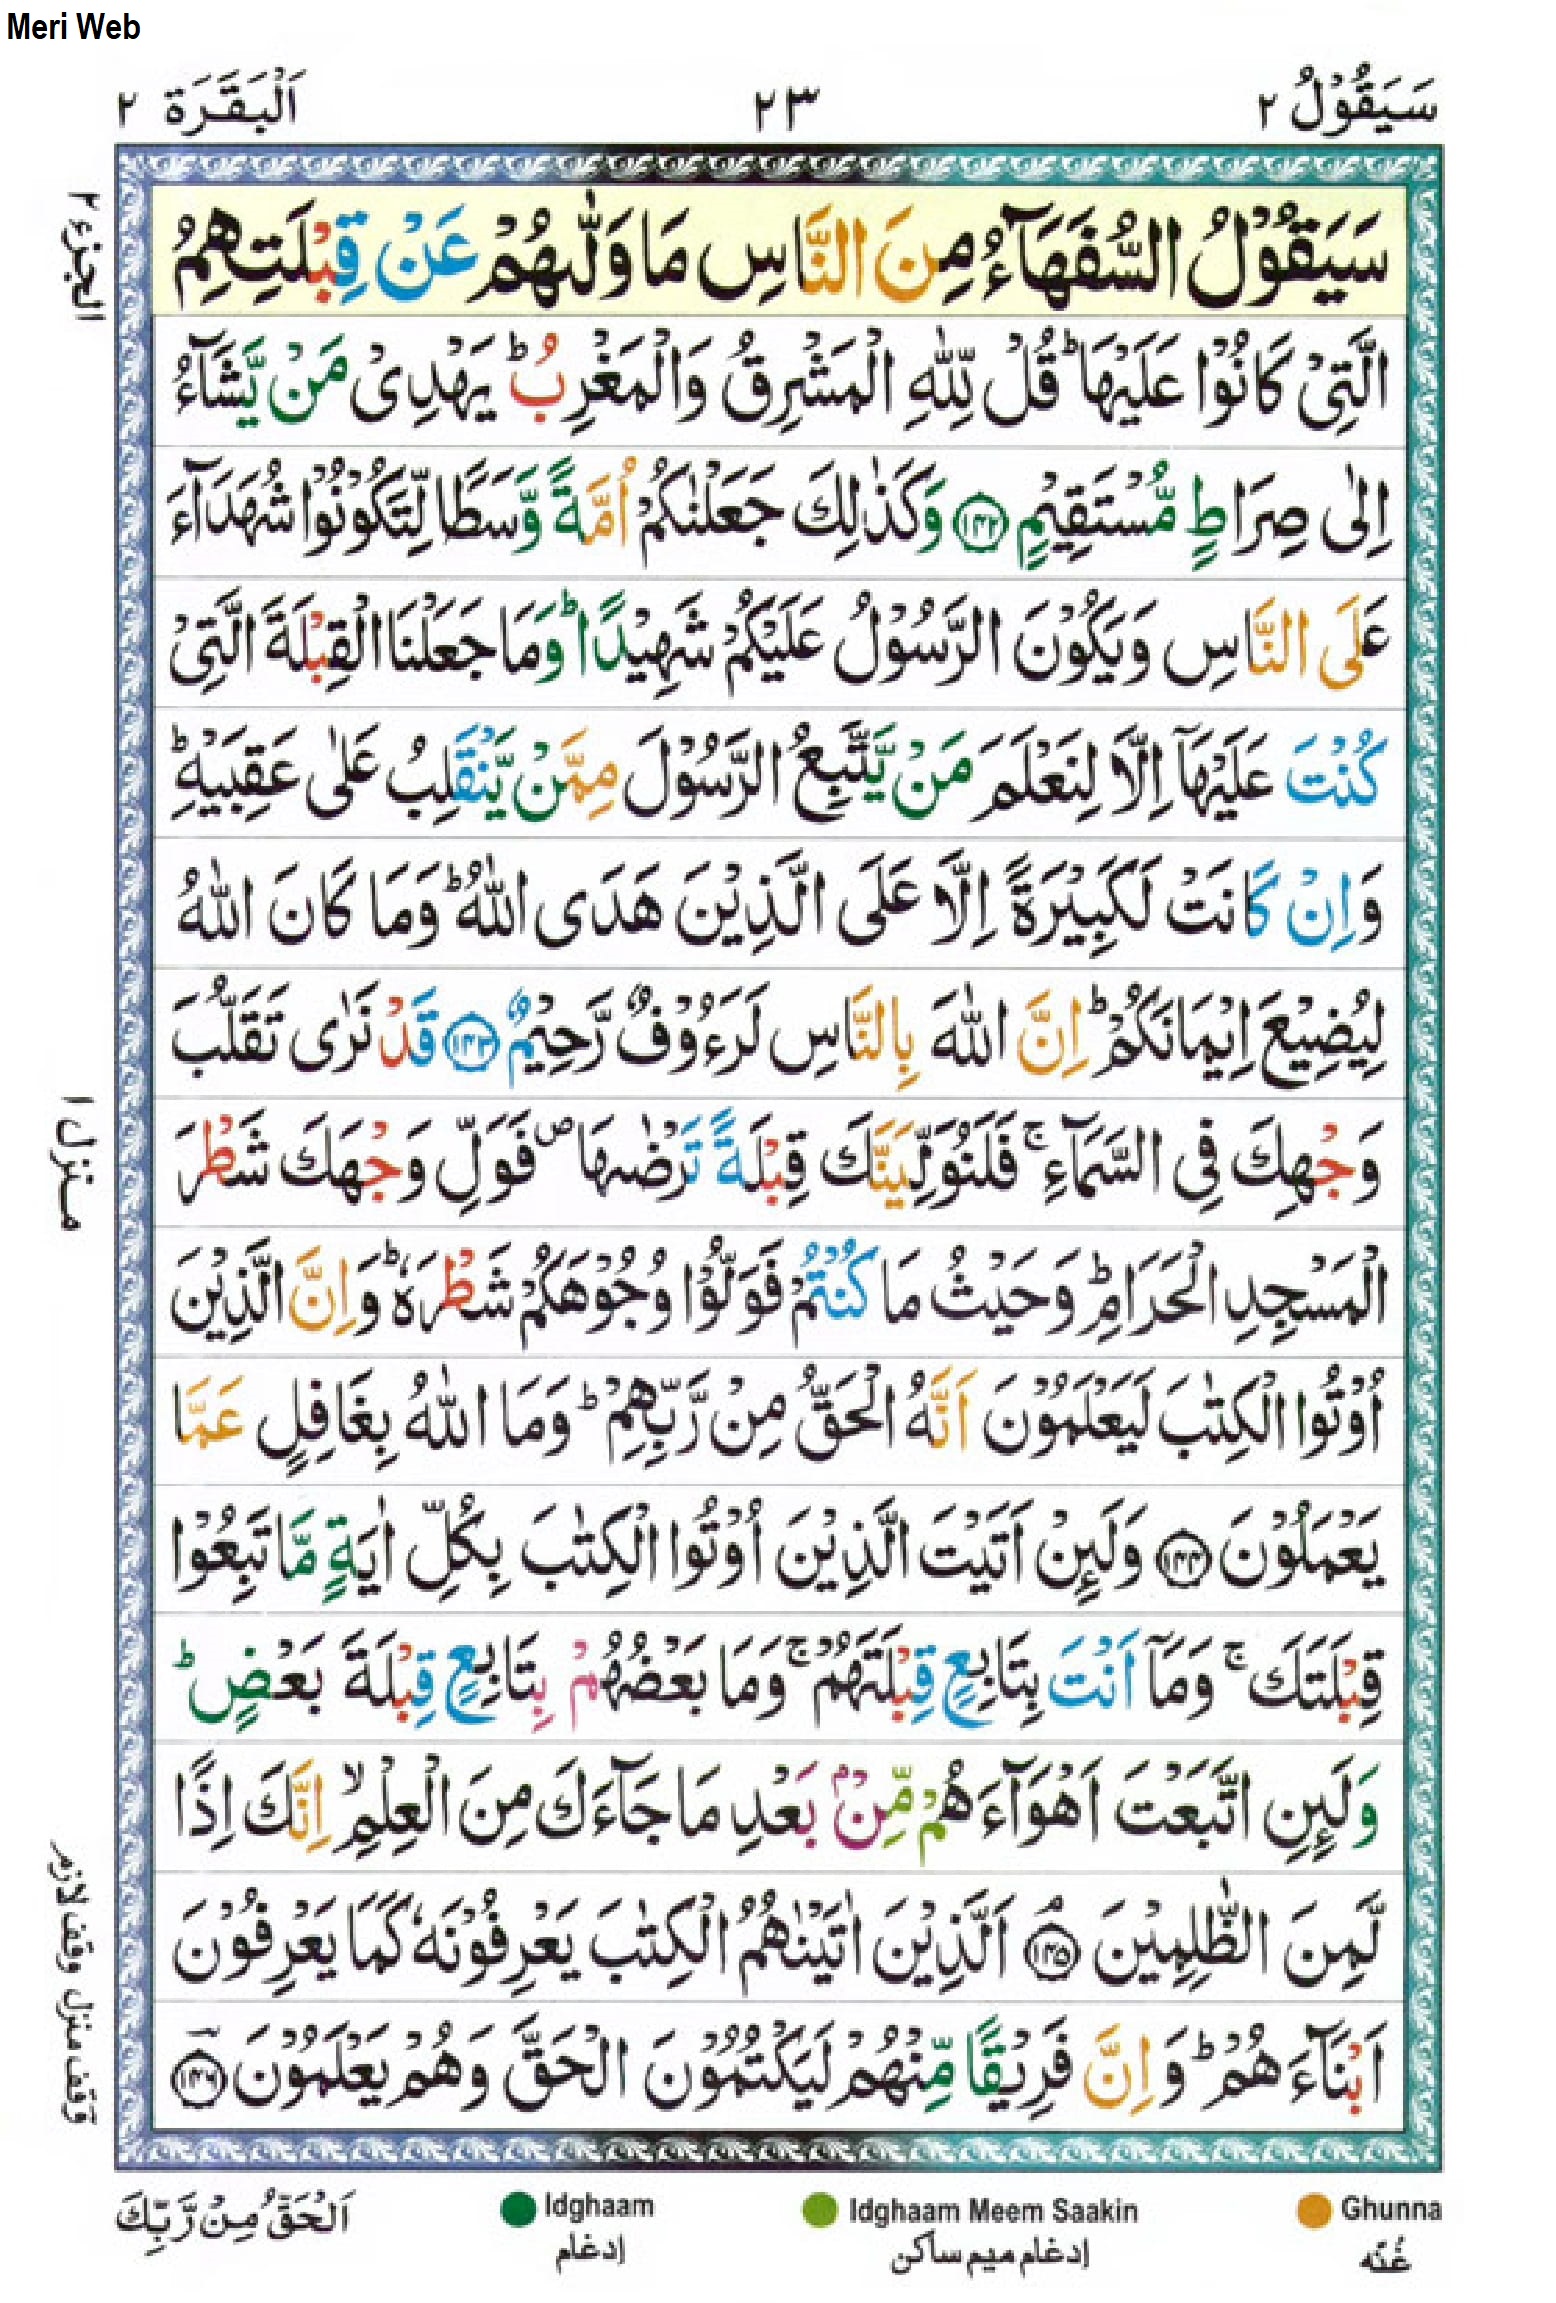 Meri Web
سَيَقُوْلُ ٢
٢٣
اَلْبَقَرَة ٢
سَيَقُوْلُ السُّفَهَآءُ مِنَ النَّاسِ مَا وَلّٰىهُمْ عَنْ قِبْلَتِهِمُ
الَّتِىْ كَانُوْا عَلَيْهَا ؕ قُلْ لِّلّٰهِ الْمَشْرِقُ وَالْمَغْرِبُ ؕ يَهْدِىْ مَنْ يَّشَآءُ
اِلٰى صِرَاطٍ مُّسْتَقِيْمٍ ﴿١٤٢﴾ وَكَذٰلِكَ جَعَلْنٰكُمْ اُمَّةً وَّسَطًا لِّتَكُوْنُوْا شُهَدَآءَ
عَلَى النَّاسِ وَيَكُوْنَ الرَّسُوْلُ عَلَيْكُمْ شَهِيْدًا ؕ وَمَا جَعَلْنَا الْقِبْلَةَ الَّتِىْ
كُنْتَ عَلَيْهَآ اِلَّا لِنَعْلَمَ مَنْ يَّتَّبِعُ الرَّسُوْلَ مِمَّنْ يَّنْقَلِبُ عَلٰى عَقِبَيْهِ ؕ
وَاِنْ كَانَتْ لَكَبِيْرَةً اِلَّا عَلَى الَّذِيْنَ هَدَى اللّٰهُ ؕ وَمَا كَانَ اللّٰهُ
لِيُضِيْعَ اِيْمَانَكُمْ ؕ اِنَّ اللّٰهَ بِالنَّاسِ لَرَءُوْفٌ رَّحِيْمٌ ﴿١٤٣﴾ قَدْ نَرٰى تَقَلُّبَ
وَجْهِكَ فِى السَّمَآءِ ۚ فَلَنُوَلِّيَنَّكَ قِبْلَةً تَرْضٰىهَا ۖ فَوَلِّ وَجْهَكَ شَطْرَ
الْمَسْجِدِ الْحَرَامِ ؕ وَحَيْثُ مَا كُنْتُمْ فَوَلُّوْا وُجُوْهَكُمْ شَطْرَهٗ ؕ وَاِنَّ الَّذِيْنَ
اُوْتُوا الْكِتٰبَ لَيَعْلَمُوْنَ اَنَّهُ الْحَقُّ مِنْ رَّبِّهِمْ ؕ وَمَا اللّٰهُ بِغَافِلٍ عَمَّا
يَعْمَلُوْنَ ﴿١٤٤﴾ وَلَئِنْ اَتَيْتَ الَّذِيْنَ اُوْتُوا الْكِتٰبَ بِكُلِّ اٰيَةٍ مَّا تَبِعُوْا
قِبْلَتَكَ ۚ وَمَآ اَنْتَ بِتَابِعٍ قِبْلَتَهُمْ ۚ وَمَا بَعْضُهُمْ بِتَابِعٍ قِبْلَةَ بَعْضٍ ؕ
وَلَئِنِ اتَّبَعْتَ اَهْوَآءَهُمْ مِّنْۢ بَعْدِ مَا جَآءَكَ مِنَ الْعِلْمِ ۙ اِنَّكَ اِذًا
لَّمِنَ الظّٰلِمِيْنَ ﴿١٤٥﴾ۘ اَلَّذِيْنَ اٰتَيْنٰهُمُ الْكِتٰبَ يَعْرِفُوْنَهٗ كَمَا يَعْرِفُوْنَ
اَبْنَآءَهُمْ ؕ وَاِنَّ فَرِيْقًا مِّنْهُمْ لَيَكْتُمُوْنَ الْحَقَّ وَهُمْ يَعْلَمُوْنَ ﴿١٤٦﴾
الجزء ٢
منزل ١
وقف منزل وقف لازم
Ghunna
غُنّه
Idghaam Meem Saakin
إدغام ميم ساكن
Idghaam
إدغام
اَلْحَقُّ مِنْ رَّبِّكَ